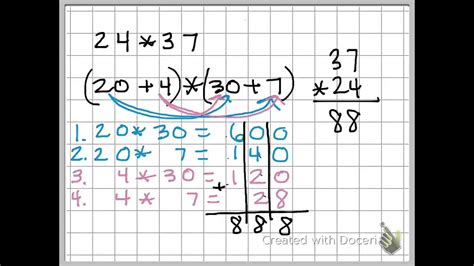 24*37
(20+4)*(30+7)
1. 20*30=600
2. 20* 7=140
3. 4*30=120
4. 4* 7=+28
888
37
*24
88
Created with Doceri